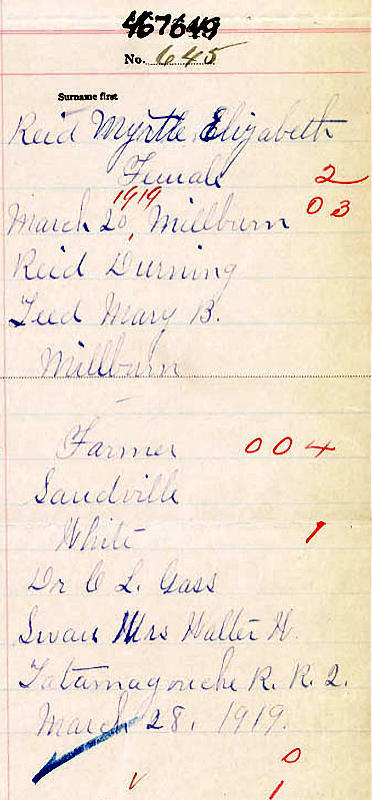 467649
No. 645
Surname first
Reid Myrtle Elizabeth
Female 2
1919
March 20, Millburn 03
Reid Durning
Teed Mary B.
Millburn
Farmer 004
Sandville
White 1
Dr C L. Gass
Swan Mrs Walter H.
Tatamagouche R. R. 2.
March 28. 1919.
0
1